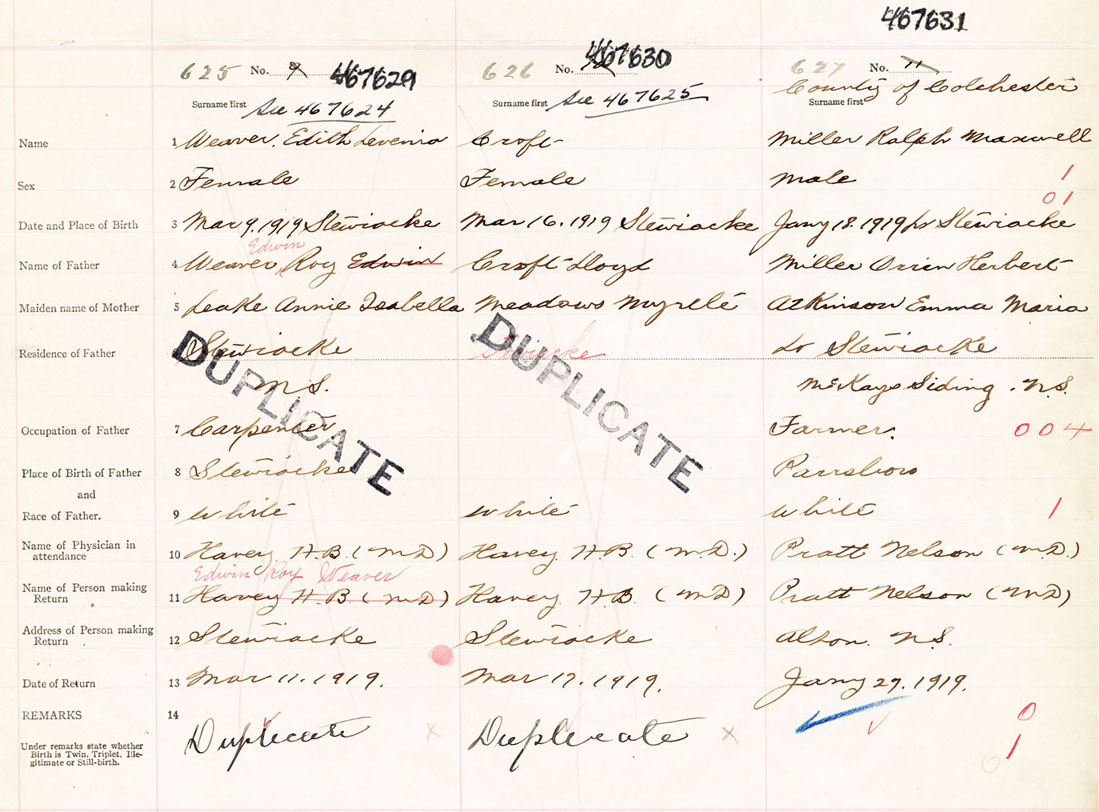 467631
625 No. 9 467629 626 No. 10 467630 627 No. 11
County of Colchester
Surname first See 467624 Surname first See 467625 Surname first
Name 1 Weaver. Edith Levenia Croft Miller Ralph Maxwell
Sex 2 Female Female Male 1
01
Date and Place of Birth 3 Mar 9. 1919 Stewiacke Mar 16. 1919 Stewiacke Jany 18. 1919 Lr Stewiacke
Edwin
Name of Father 4 Weaver Roy Edwin Croft Lloyd Miller Orien Herbert
Maiden name of Mother 5 Leake Annie Isabella Meadows Myrtle Atkinson Emma Maria
Residence of Father Stewiacke Stewiacke Lr Stewiacke
DUPLICATE DUPLICATE
N.S. McKays Siding. N.S.
Occupation of Father 7 Carpenter Farmer. 004
Place of Birth of Father 8 Stewiacke Parrsboro
and
Race of Father. 9 White White White 1
Name of Physician in
attendance 10 Havey H.B. (M.D) Havey. H.B. (M.D.) Pratt Nelson (M.D.)
Edwin Roy Weaver
Name of Person making
Return 11 Havey H.B (M.D) Havey. H.B. (M.D) Pratt Nelson (M.D)
Address of Person making
Return 12 Stewiacke Stewiacke Alton. N.S.
Date of Return 13 Mar 11. 1919. Mar 17. 1919. Jany 27. 1919.
REMARKS 14 Duplicate x Duplicate x 0
Under remarks state whether
Birth is Twin, Triplet, Ille-
gitimate or Still-birth. 1